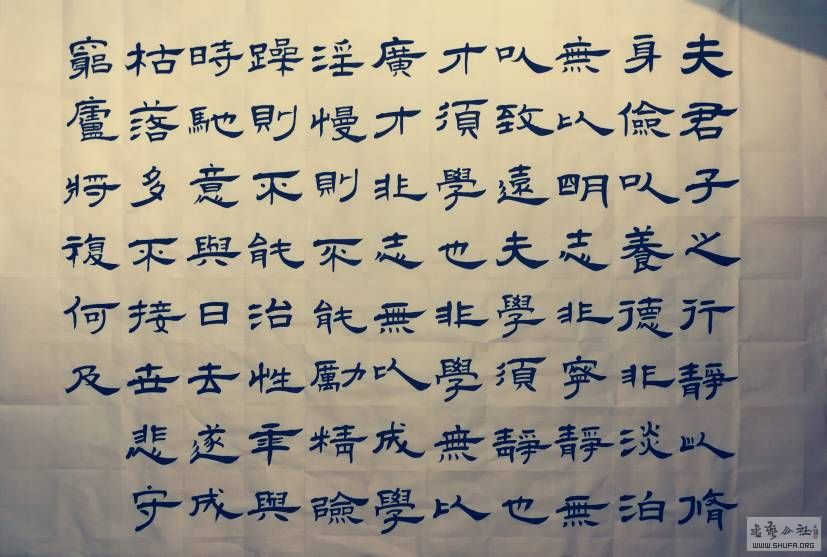 夫君子之行靜以脩
身儉以養德非淡泊
無以明志非寧靜無
以致遠夫學須靜也
才須學也非學無以
廣才非志無以成學
淫慢則不能勵精險
躁則不能治性年與
時馳意與日去遂成
枯落多不接世悲守
窮廬將複何及
WWW.SHUFA.ORG